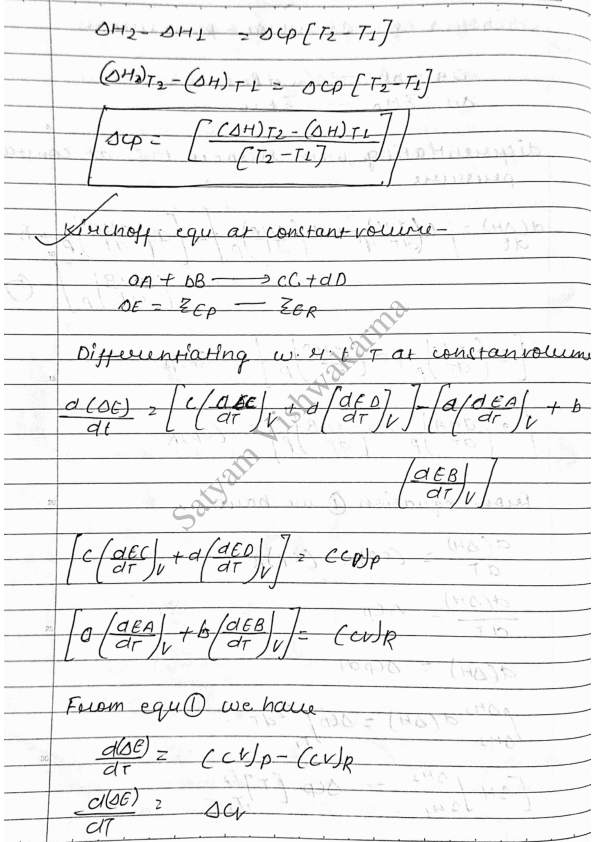 ΔH2 - ΔH1 = ΔCp [T2 - T1]
(ΔH2)T2 - (ΔH)T1 = ΔCp [T2 - T1]
ΔCp = [(ΔH)T2 - (ΔH)T1 / [T2 - T1]]
Kirchoff equ at constant volume-
aA + bB ⟶ cC + dD
ΔE = ΣEP — ΣER
Differentiating w.r.t T at constan volume
d(ΔE)/dt = [c(dEC/dT)V + d[dED/dT]V] - [a(dEA/dT)V + b
(dEB/dT)V]
[c(dEC/dT)V + d(dED/dT)V] = (CV)P
[a(dEA/dT)V + b(dEB/dT)V] = (CV)R
From equ ① we have
d(ΔE)/dT = (CV)P - (CV)R
d(ΔE)/dT = ΔCV
Satyam Vishwakarma